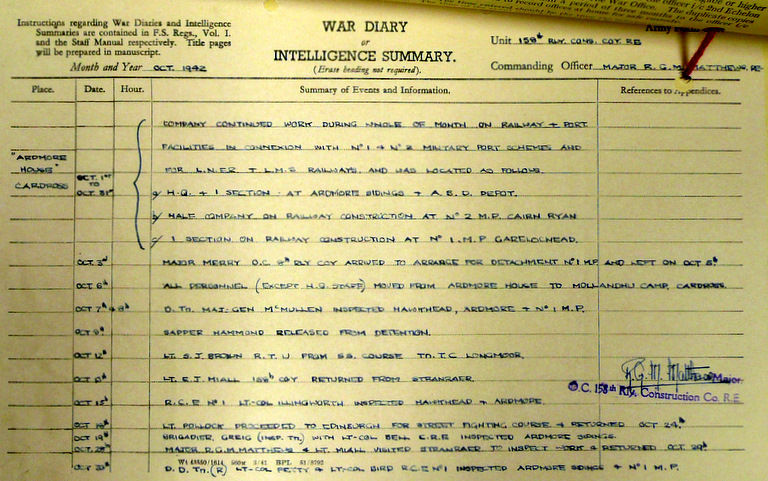 Instructions regarding War Diaries and Intelligence
Summaries are contained in F.S. Regs., Vol. I.
and the Staff Manual respectively. Title pages
will be prepared in manuscript.
Month and Year OCT. 1942
WAR DIARY
or
INTELLIGENCE SUMMARY.
(Erase heading not required).
Army
Unit 158th RLY. CONS. COY. RE
Commanding Officer MAJOR R.G.M. MATTHEWS. RE
Place. Date. Hour. Summary of Events and Information. References to Appendices.
"ARDMORE HOUSE" CARDROSS
OCT. 1ST TO OCT. 31ST
COMPANY CONTINUED WORK DURING WHOLE OF MONTH ON RAILWAY + PORT
FACILITIES IN CONNEXION WITH No 1 + No 2 MILITARY PORT SCHEMES AND
FOR L.N.E.R. + L.M.S RAILWAYS, AND WAS LOCATED AS FOLLOWS.
a/ H.Q. + 1 SECTION - AT ARDMORE SIDINGS + A.S.D. DEPOT.
b/ HALF COMPANY ON RAILWAY CONSTRUCTION AT No 2 M.P. CAIRN RYAN
c/ 1 SECTION ON RAILWAY CONSTRUCTION AT No 1. M.P GARELOCHEAD.
OCT. 3rd MAJOR MERRY O.C. 8th RLY COY ARRIVED TO ARRANGE FOR DETACHMENT No 1 M.P. AND LEFT ON OCT 5th.
OCT 6th ALL PERSONNEL (EXCEPT H.Q. STAFF) MOVED FROM ARDMORE HOUSE TO MOLLANDHU CAMP, CARDROSS.
OCT 7th + 8th D. Tn. MAJ-GEN McMULLEN INSPECTED HAWKHEAD, ARDMORE + No 1 M.P.
OCT 9th SAPPER HAMMOND RELEASED FROM DETENTION.
OCT 12th LT. S.J. BROWN R.T.U FROM S.S. COURSE Tn. T.C LONGMOOR.
OCT 13th LT. E.J. MIALL 158th COY RETURNED FROM STRANRAER.
OCT 15th R.C.E No 1 LT-COL ILLINGWORTH INSPECTED HAWKHEAD & ARDMORE.
R.G.M. Matthews Major
O.C. 158th Rly. Construction Co. R.E
OCT 18th LT. POLLOCK PROCEEDED TO EDINBURGH FOR STREET FIGHTING COURSE + RETURNED OCT 24th.
OCT 19th BRIGADIER, GREIG (INSP. Tn.) WITH LT-COL BELL C.R.E INSPECTED ARDMORE SIDINGS.
OCT 28th MAJOR R.G.M. MATTHEWS & LT. MIALL VISITED STRANRAER TO INSPECT WORK & RETURNED OCT 29th.
OCT 30th D.D. Tn. (R) LT-COL PETTY & LT-COL BIRD R.C.E No 1 INSPECTED ARDMORE SIDINGS + No 1 M.P.